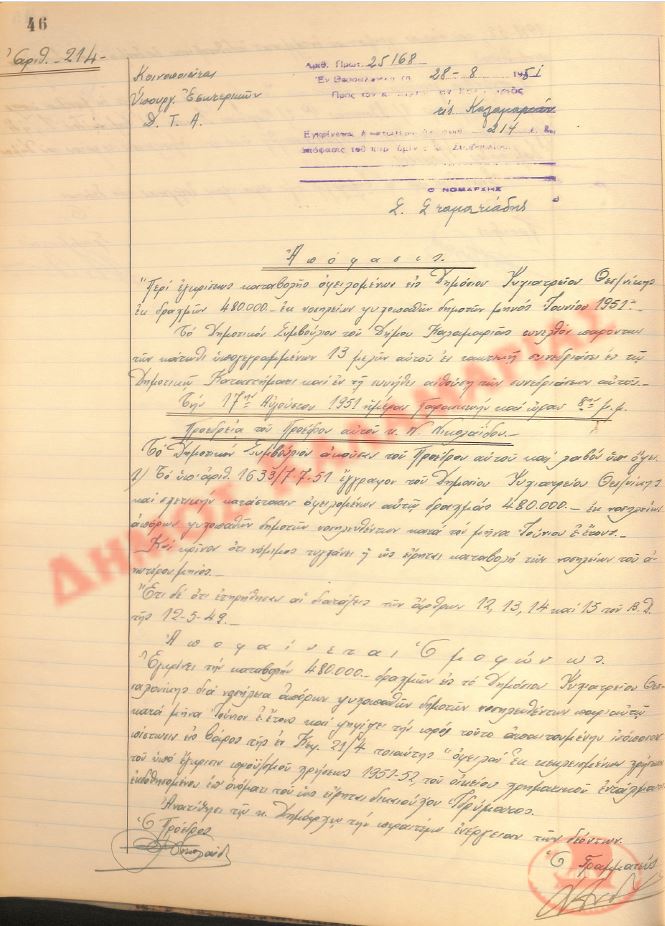 46
Ἀριθ. 214-
Κοινοποιεῖται
Ὑπουργ. Ἐσωτερικῶν
Δ. Τ. Α.
Ἀριθ. Πρωτ. 25168
Ἐν Θεσσαλονίκῃ τῇ 28-8 1951
Πρὸς τὸν
εἰς Καλαμαριάν
Ἐγκρίνεται 214
Ο ΝΟΜΑΡΧΗΣ
Σ. Σταματιάδης
Ἀπόφασις.
"Περὶ ἐγκρίσεως καταβολῆς ὀφειλομένων εἰς Δημόσιον Ψυχιατρεῖον Θεσ/νίκης
ἐκ δραχμῶν 480.000.- ἐκ νοσηλείων ψυχοπαθῶν δημοτῶν μηνὸς Ἰουνίου 1951"
Τὸ Δημοτικὸν Συμβούλιον τοῦ Δήμου Καλαμαριᾶς συνελθὸν παρόντων
τῶν κάτωθι ὑπογεγραμμένων 13 μελῶν αὐτοῦ ἐν τακτικῇ συνεδριάσει ἐν τῷ
Δημοτικῷ Καταστήματι καὶ ἐν τῇ συνήθει αἰθούσῃ τῶν συνεδριάσεων αὐτοῦ.-
Τὴν 17ην Αὐγούστου 1951 ἡμέραν Παρασκευὴν καὶ ὥραν 8ην μ.μ.
Προεδρεία τοῦ Προέδρου αὐτοῦ κ. Ν. Νικολαΐδου.-
Τὸ Δημοτικὸν Συμβούλιον ἀκοῦσαν τοῦ Προέδρου αὐτοῦ καὶ λαβὸν ὑπ' ὄψει
1/ Τὸ ὑπ' ἀριθ. 1633/7-7-51 ἔγγραφον τοῦ Δημοσίου Ψυχιατρείου Θεσ/νίκης
καὶ σχετικὴν κατάστασιν ὀφειλομένων αὐτῷ δραχμὰς 480.000.- ἐκ νοσηλείων
ἀπόρων ψυχοπαθῶν δημοτῶν νοσηλευθέντων κατὰ τὸν μῆνα Ἰούνιον ἐ. ἔτους.-
Καὶ κρῖναν ὅτι νόμιμος τυγχάνει ἡ ὡς εἴρηται καταβολὴ τῶν νοσηλείων τοῦ
μηνός.-
Ἔτι δὲ ὅτι ἐτηρήθησαν αἱ διατάξεις τῶν ἄρθρων 12, 13, 14 καὶ 15 τοῦ Β.Δ.
τῆς 12-5-49.-
Ἀποφαίνεται Ὁμοφώνως.
Ἐγκρίνει τὴν καταβολὴν 480.000.- δραχμῶν εἰς τὸ Δημόσιον Ψυχιατρεῖον Θεσ-
σαλονίκης διὰ νοσήλεια ἀπόρων ψυχοπαθῶν δημοτῶν νοσηλευθέντων παρ' αὐτῷ
κατὰ μῆνα Ἰούνιον ἐ. ἔτους καὶ ψηφίζει τὴν πρὸς τοῦτο ἀπαιτουμένην
πίστωσιν εἰς βάρος τῆς ἐν Κεφ. 21/4 τοιαύτης "ὀφειλαὶ ἐκ κεκλεισμένων χρήσεων"
τοῦ ὑπὸ ἔγκρισιν προϋπ/σμοῦ χρήσεως 1951-52, τοῦ οἰκείου χρηματικοῦ ἐντάλματος
ἐκδοθησομένου ἐπ' ὀνόματι τοῦ ὡς εἴρηται δικαιούχου Ἱδρύματος.
Ἀνατίθησι τῷ κ. Δημάρχῳ τὴν περαιτέρω ἐνέργειαν τῶν δεόντων.
Ὁ Πρόεδρος
Ὁ Γραμματεὺς
ΔΗΜΟΣ ΚΑΛΑΜΑΡΙΑΣ